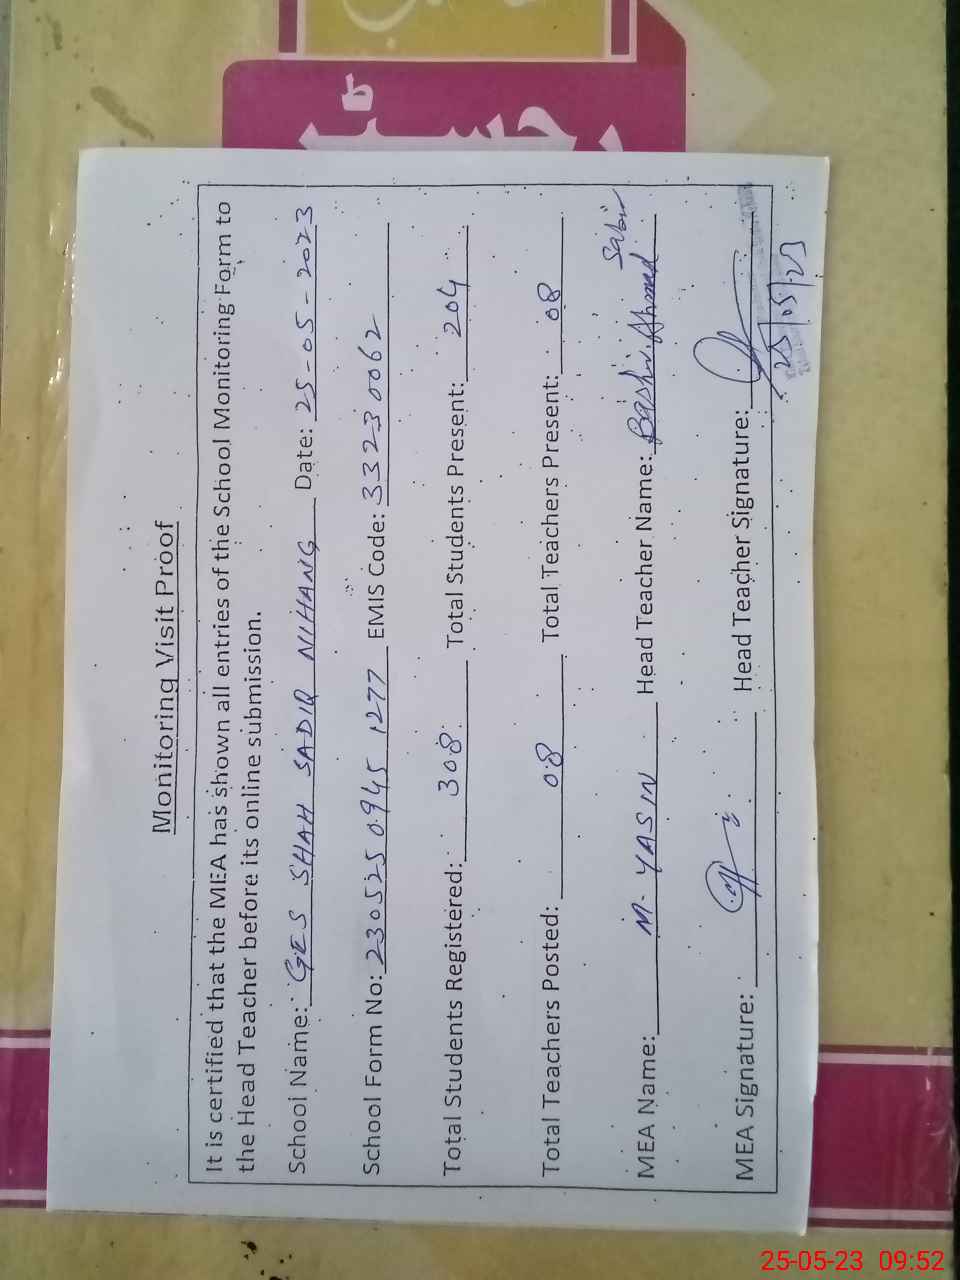 رجسٹر
Monitoring Visit Proof
It is certified that the MEA has shown all entries of the School Monitoring Form to
the Head Teacher before its online submission.
School Name: GES SHAH SADIQ NIHANG Date: 25-05-2023
School Form No: 230525 0945 1277 EMIS Code: 33230062
Total Students Registered: 308 Total Students Present: 204
Total Teachers Posted: 08 Total Teachers Present: 08
MEA Name: M. YASIN Head Teacher Name: Bashir Ahmed Sabir
MEA Signature: Head Teacher Signature:
25/05/23
25-05-23 09:52